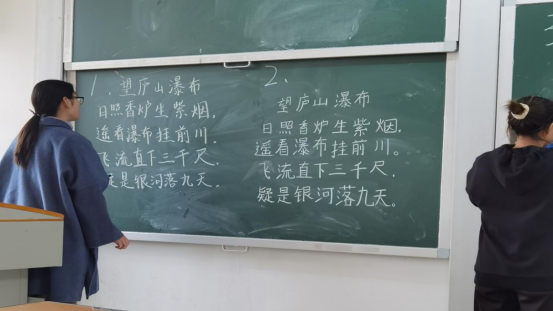 1. 望庐山瀑布
日照香炉生紫烟，
遥看瀑布挂前川。
飞流直下三千尺，
疑是银河落九天。
2、
望庐山瀑布
日照香炉生紫烟，
遥看瀑布挂前川。
飞流直下三千尺，
疑是银河落九天。